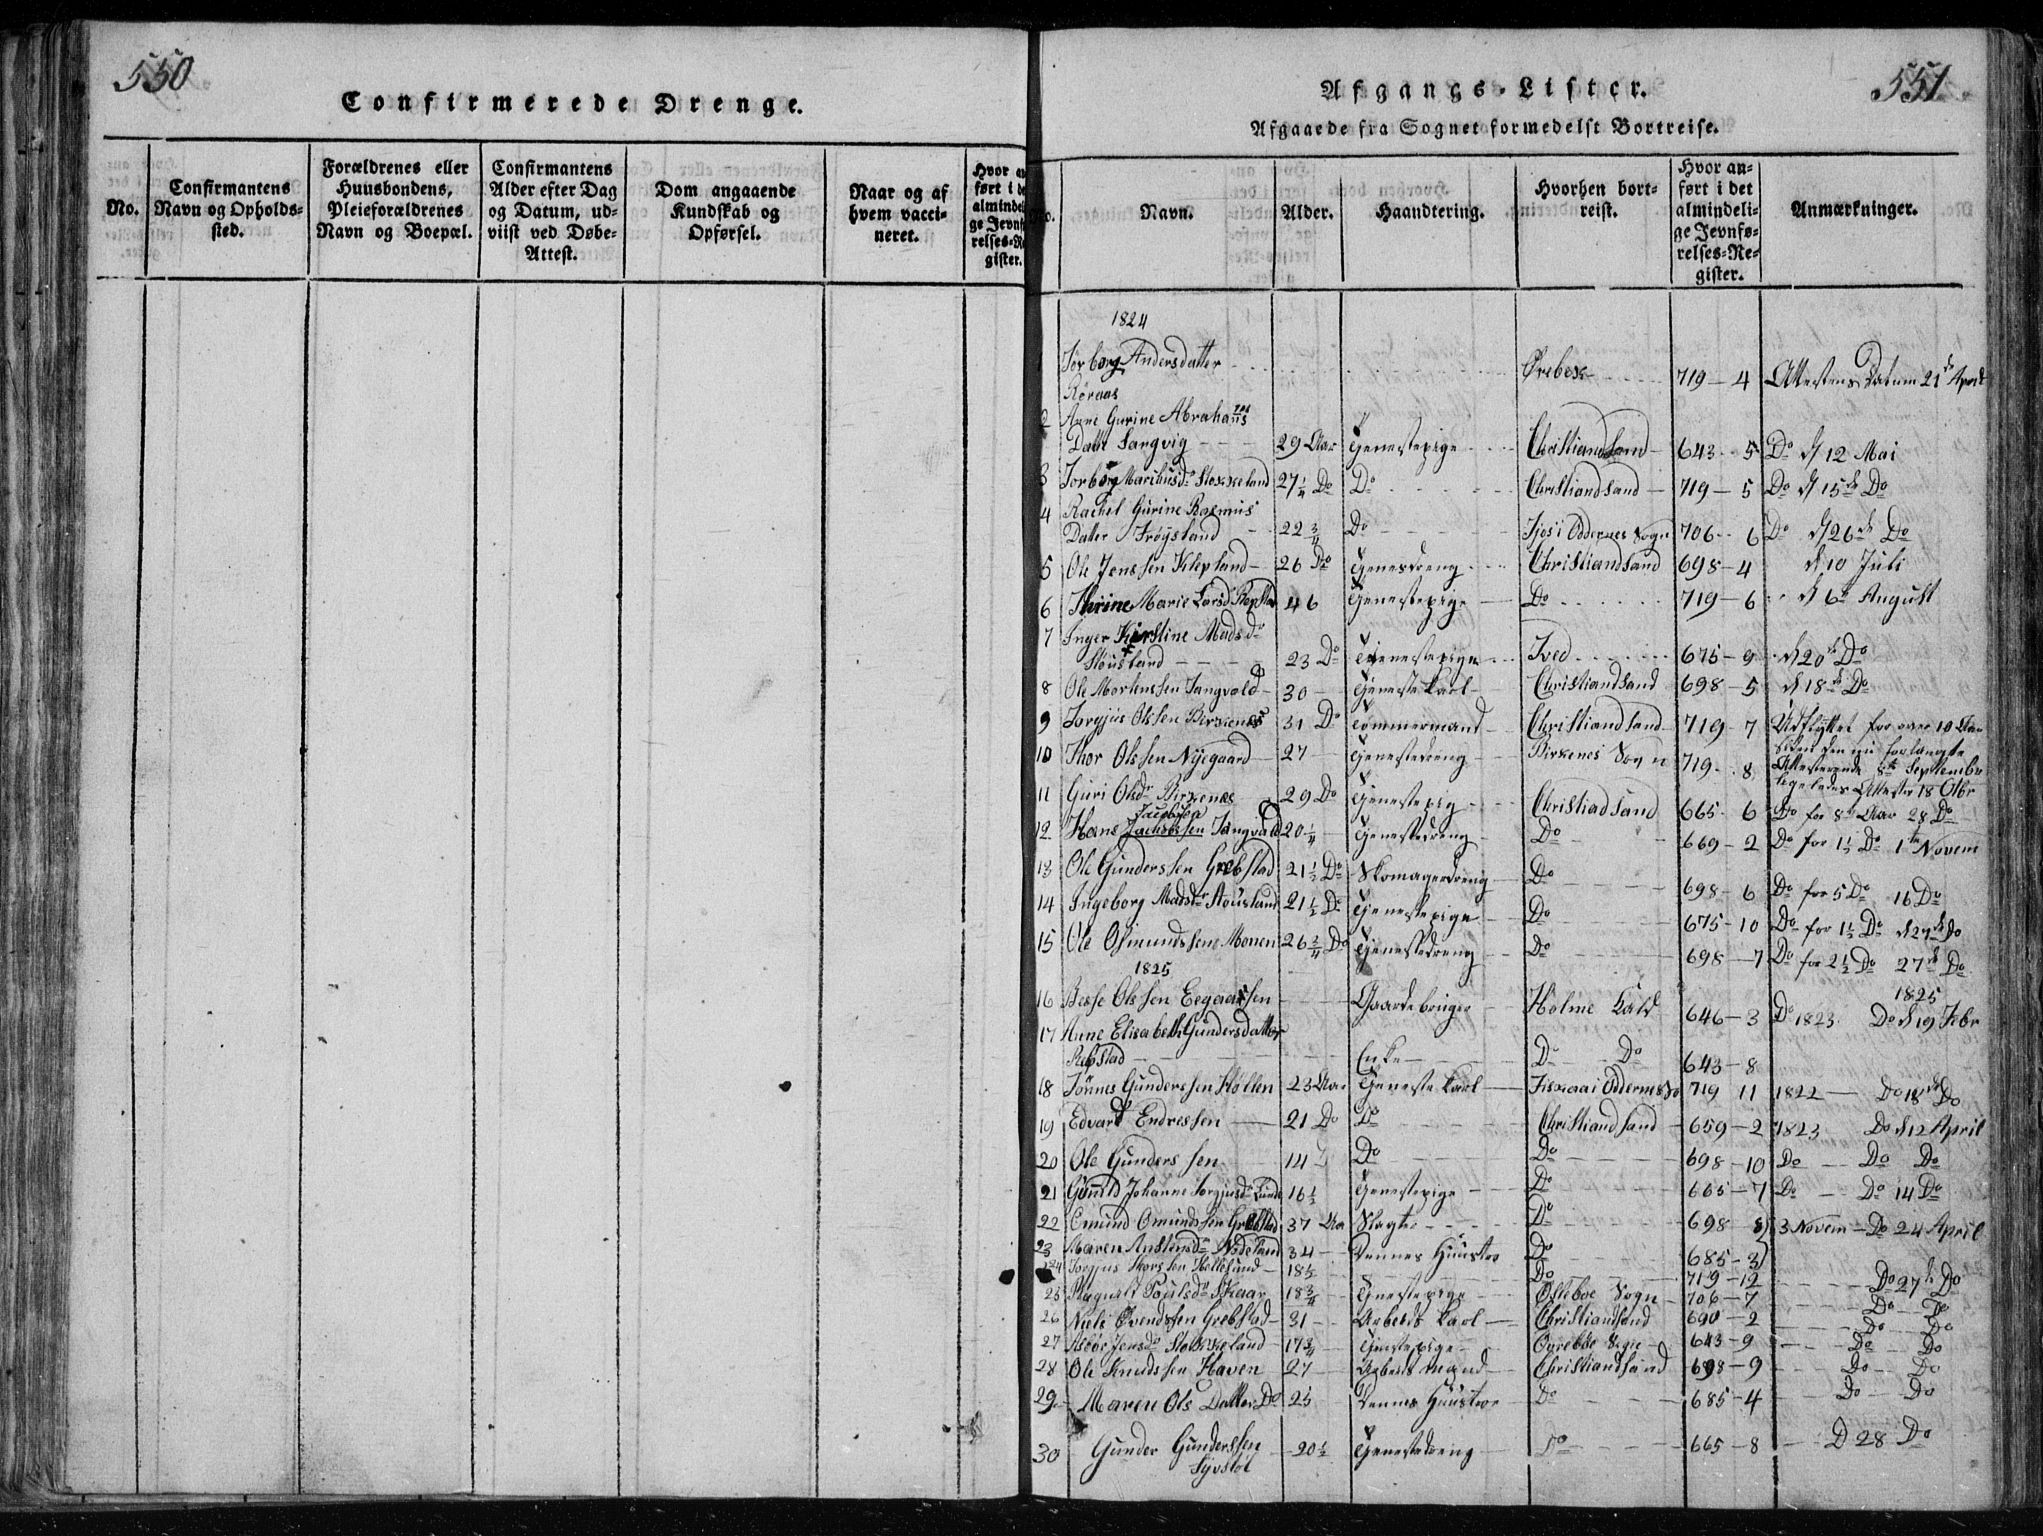 550
Confirmerede Drenge.
No.
Confirmantens
Navn og Opholds-
sted.
Forældrenes eller
Huusbondens,
Pleieforældrenes
Navn og Boepæl.
Confirmantens
Alder efter Dag
og Datum, ud-
viist ved Døbe-
Attest.
Dom angaaende
Kundskab og
Opførsel.
Naar og af
hvem vacci-
neret.
Hvor an
ført i de
almindel
ge Jevnf
relses-Re
gister.
551
Afgangs-Lister.
Afgaaede fra Sognet formedelst Bortreise.
No.
Navn.
Alder.
Haandtering.
Hvorhen bort-
reist.
Hvor an-
ført i det
almindeli-
ge Jevnfø-
relses-Re-
gister.
Anmærkninger.
1824
Torborg Andersdatter Øvebøe 719-4 Attestens Datum 21 April
Røraas
2 Anne Gurine Abrahams
Datter Langvig 29 Aar Tjenestepige Christiandsand 643-5 Do d 12 Mai
3 Torborg Marihusdr Stokkeland 27 1/4 Do Do Christiandsand 719-5 Do d 15de Do
4 Rachel Gurine Rasmus
Datter Frøysland 22 3/4 Do Fjos i Oddernes Sogn 706-6 Do d 26de Do
5 Ole Jenssen Klepland 26 Do Tjenesdreng Christiandsand 698-4 d 10 Juli
6 Thrine Marie Larsd Repstad 46 Tjenestepige Do 719-6 d 6te August
7 Inger Kirstine Madsdr
Stousland 23 Do Tienestepige Tved 675-9 d 20de Do
8 Ole Mortenssen Tangvald 30 Tjenestekarl Christiandsand 698-5 d 18de Do
9 Torgjus Olssen Birkenes 31 Do Tømmermand Christiandsand 719-7 Udflyttet for over 10 Aar
siden den nu forlangte
10 Thor Olssen Nyegaard 27 Tjenestedreng Birkenes Sogn 719-8 Attesterende 8de Septembr
ligeledes Attester 18 Otbr
11 Guri Olsdr Birkenes 29 Do Tjenestepig Christiadsand 665-6 Do for 8te Aar 28 Do
Jacobsen
12 Hans Tangvald 20 1/4 Tjenestedreng Do 669-2 Do for 1 1/2 Do 1te Novem
13 Ole Gunderssen Grebstad 21 1/2 Do Skomagerdreng Do 698-6 Do for 5 Do 16 Do
14 Ingeborg Madsdr Stousland 21 1/2 Do Tjenestepige Do 675-10 Do for 1 1/2 Do d 27de Do
15 Ole Osmundssen Monen 26 3/4 Do Tjenestedreng Do 698-7 Do for 2 1/2 Do 27de Do
1825
1825
16 Besse Olssen Eegaassen Gaardebruger Holme Kald 646-3 Do 1823 Do d 19 Febr
17 Anne Elisabeth Gundersdatter
Repstad Enke Do Do 643-8
18 Tønnes Gunderssen Støllen 23 Aar Tjenestekarl Fiskaa i Oddernes So 719 11 1822 Do 18de Do
19 Edvard Endressen 21 Do Do Christiandsand 659-2 1823 Do d 12 April
20 Ole Gunderssen 14 Do Do 698-10 Do Do Do
21 Gunild Johanne Torgjusdr Lunde 16 1/2 Tjenestepige Do 665-7 Do Do 14 Do
22 Omund Omundssen Grebstad 37 Aar Slagter Do 698 8 3 Novem Do 24 April
23 Maren Anstensdr Nodeland 34 Dennes Huustroe Do 685-3
24 Torgjus Thorssen Hellesund 18 1/2 Do 719-12 Do 27de Do
25 Ragnild Poulsdr Skaar 18 3/4 Tjenestepige Østeboe Sogn 706-7 Do Do
26 Niels Evendssen Grebstad 31 Arbeids Karl Christiandsand 690-2 Do Do
27 Asbør Jensdr Stokkeland 17 3/4 Tjenstepige Øvrebøe Sogn 643-9 Do Do
28 Ole Knudssen Haven 27 Arbeidsmand Christiandsand 698-9 Do Do
29 Maren Ols Datter Do 25 Dennes Huustroe Do 685-4 Do Do
30 Gunder Gunderssen 20 1/2 Tjenestedreng Do 665-8 D 28 Do